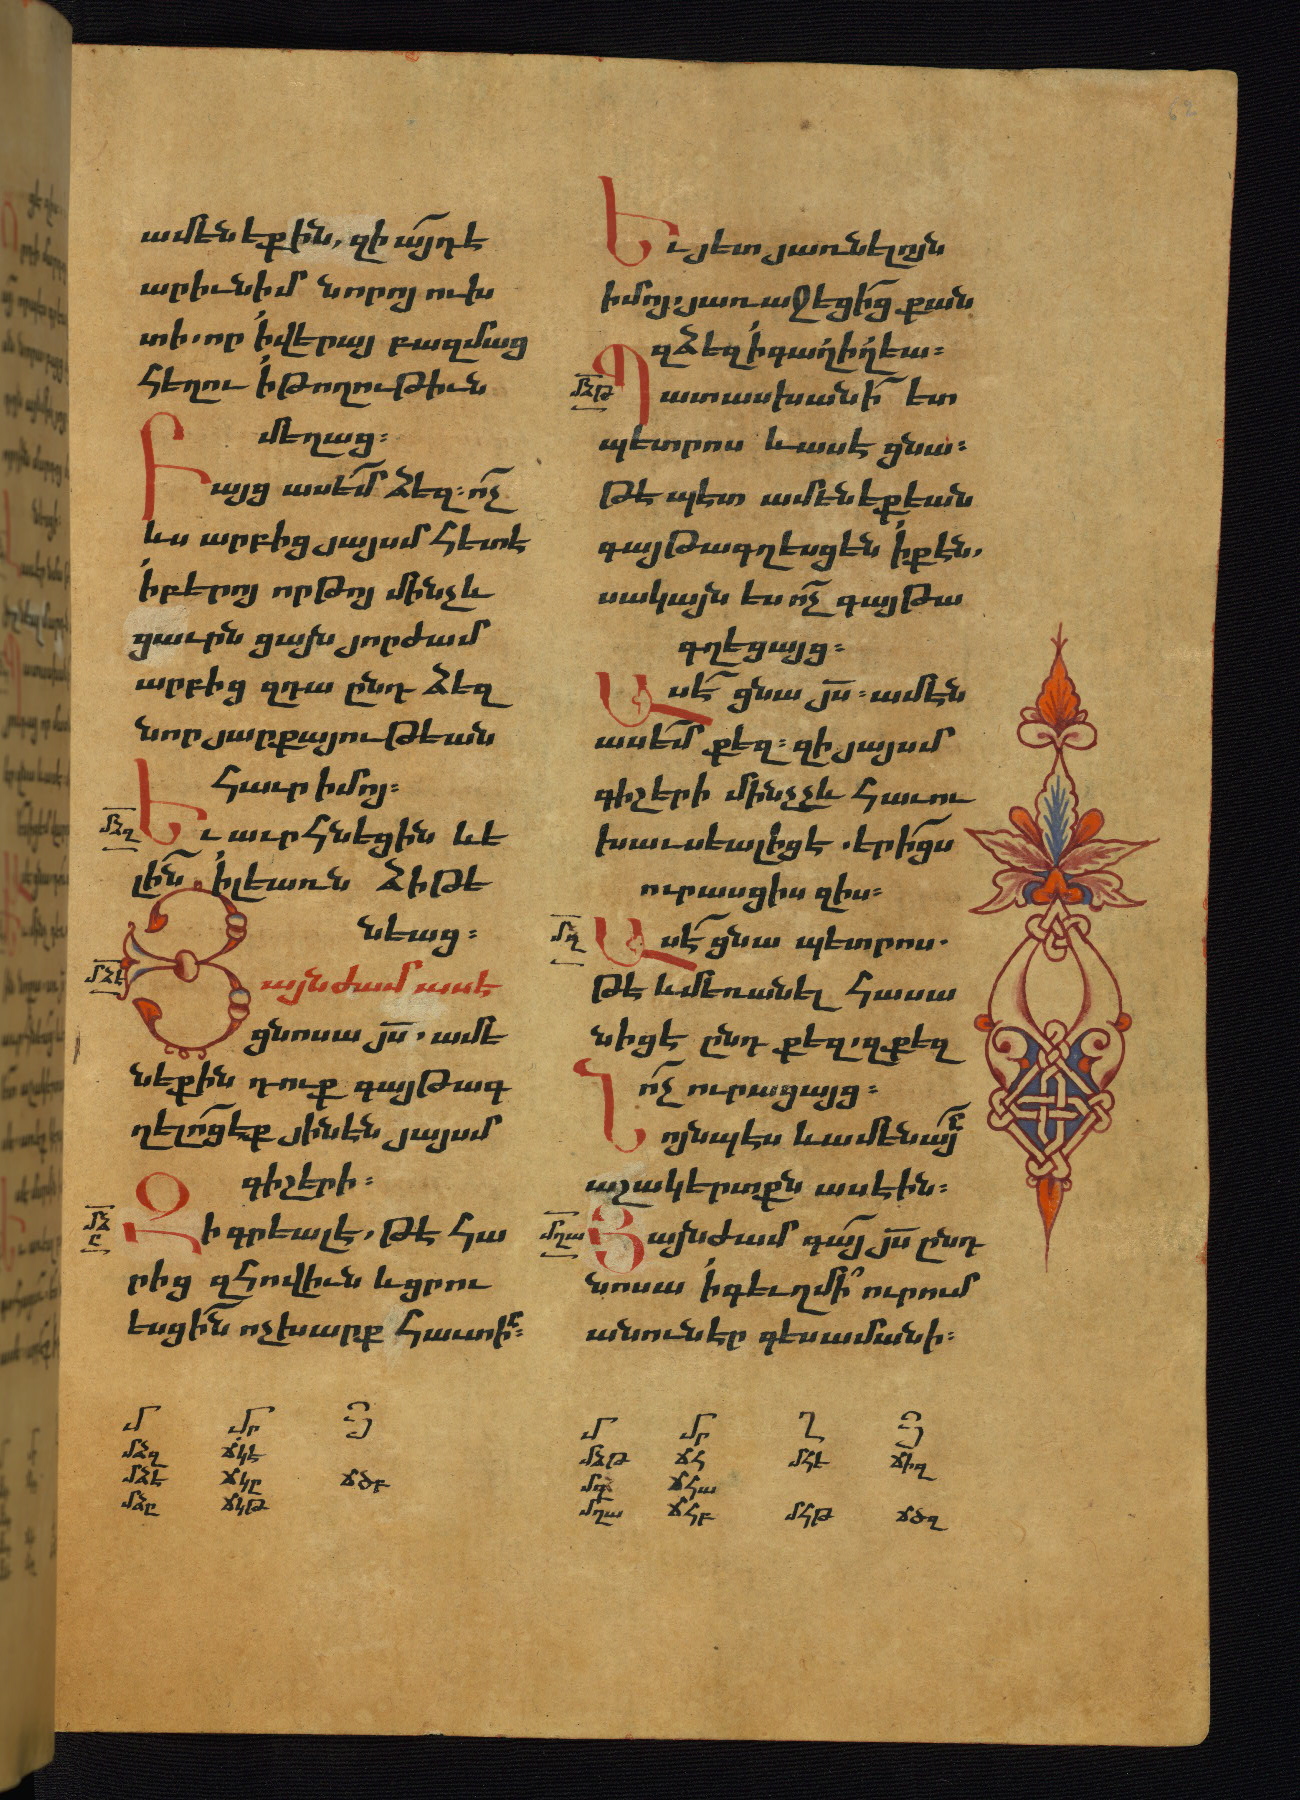 62
ամենեքին, զի ա՟յդ է
արիւն իմ նորոյ ուխ
տի. որ ի վերայ բազմաց
հեղու ի թողութիւն
մեղաց։
Բայց ասե՟մ ձեզ։ ո՟չ
ևս արբից յայսմ հետէ
ի բերոյ որթոյ մինչև
ցաւրն ցայն յորժամ
արբից զդա ընդ ձեզ
նոր յարքայութեան
հաւր իմոյ։
մձզ
Եւ աւրհնեցին և ե
լի՟ն ի լեառն ձիթե
նեաց։
մձէ
Յայնժամ ասէ
ցնոսա յ՟ս. ամե
նեքին դուք գայթագ
ղելո՟ց էք յինէն յայսմ
գիշերի։
մձը
Զի գրեալ է, թէ հա
րից զհովիւն և ցրու
եսցի՟ն ոչխարք հաւտի՟ն։
Եւ յետ յառնելոյն
իմոյ. յառաջեցի՟ց քան
զձեզ ի գաղիղեա։
մձթ
Պատասխանի՟ ետ
պետրոս և ասէ ցնա։
թէպետ ամենեքեան
գայթագղեսցեն ի քէն,
սակայն ես ո՟չ գայթա
գղեցայց։
Ասե՟ ցնա յ՟ս։ ամէն
ասե՟մ քեզ։ զի յայսմ
գիշերի մինչչև հաւու
խաւսեալ իցէ. երի՟ցս
ուրասցիս զիս։
մղ
Ասե՟ ցնա պետրոս.
թէ և մեռանել հասա
նիցէ ընդ քեզ, զքեզ
ո՟չ ուրացայց։
Նոյնպէս և ամենա՟յն
աշակերտքն ասէին։
մղա
Յայնժամ գա՟յ յ՟ս ընդ
նոսա ի գեւղ մի՟ ուրում
անուն էր գեսամանի։
մ մր յ
մձզ ճկէ
մձէ ճկը ճծբ
մձը ճկթ
մ մր ղ յ
մձթ ճհ մհէ ճիզ
մղ ճհա
մղա ճհբ մհթ ճծզ